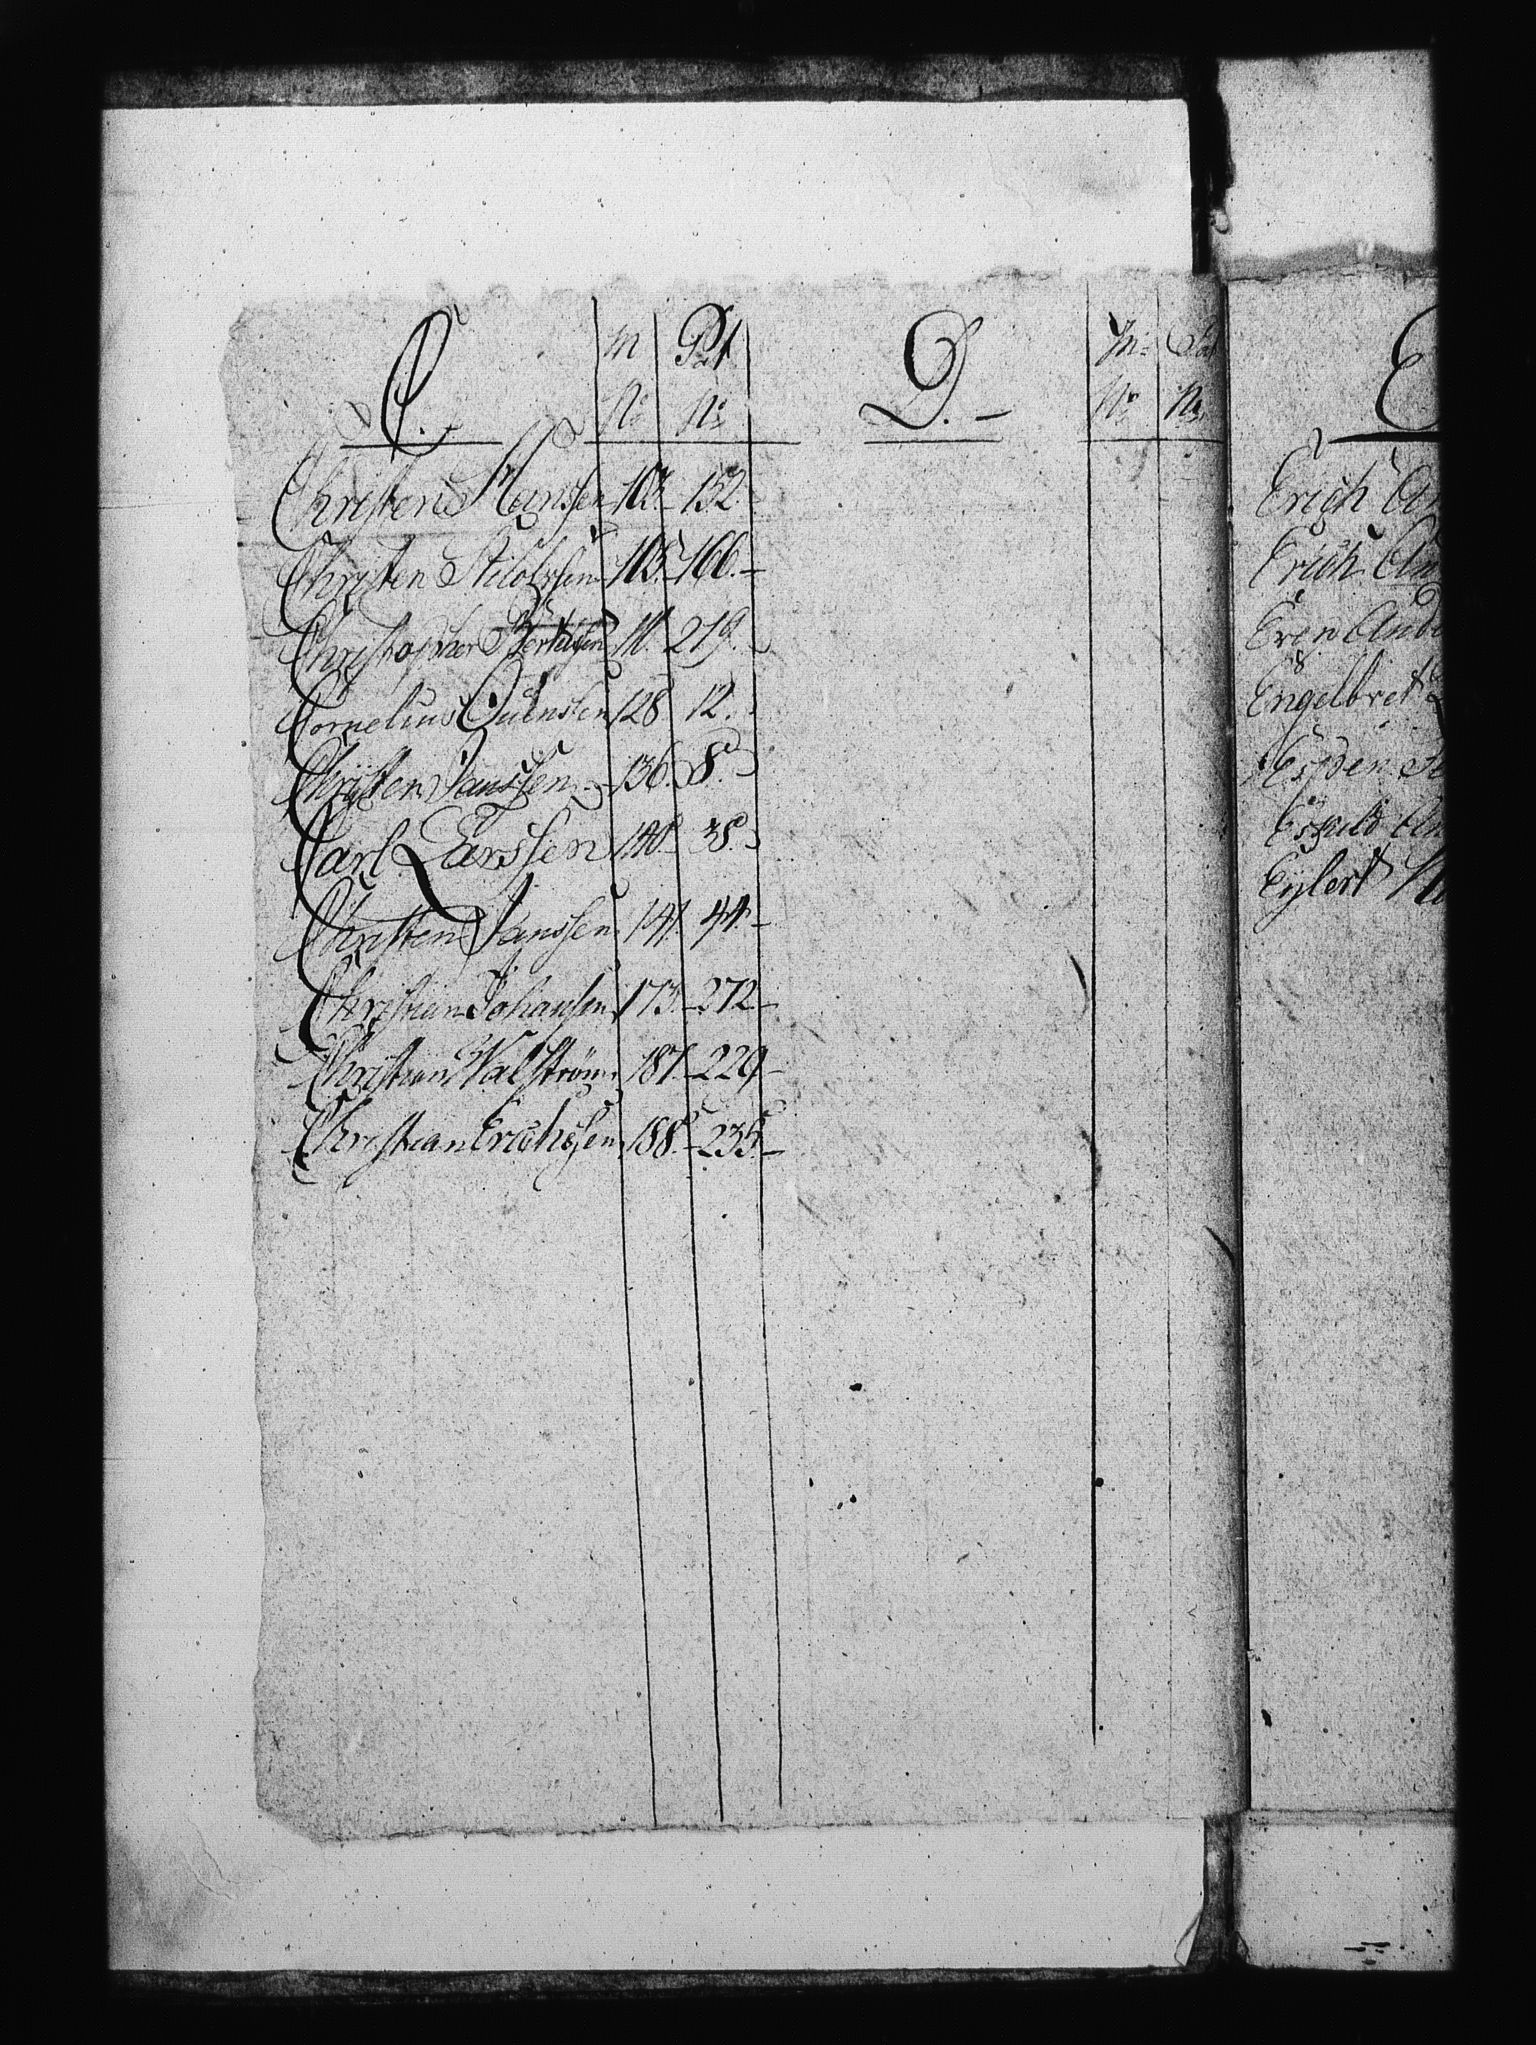 C. In Pat
No No
Christen Hanssen 103. 152.
Christen 105. 166.
Christopher 111. 219.
Cornelius Guenssen 128 12.
Christen Janssen 136. 8.
Carl Larssen 140. 38.
Christen Janssen 141. 44.
Christian Johansen 173. 272
Christian Valström 187. 229
Christian Erichsen 188. 235.
D. In Pat
No No
E
Erich
Erich
Even
Engelbret
Espen
Eskild
Eylert